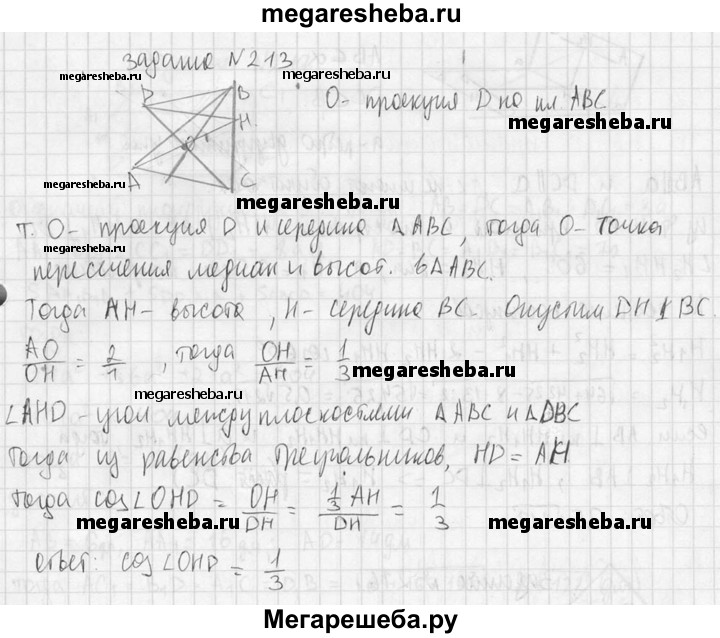 megaresheba.ru
задание N213
megaresheba.ru
D B
O - проекция D на пл. ABC
H
megaresheba.ru
O
A C
megaresheba.ru
megaresheba.ru
т. O - проекция D и середина △ABC, тогда O - точка
megaresheba.ru
пересечения медиан и высот. в △ABC.
Тогда AH - высота, H - середина BC. Опустим DH ⊥ BC.
AO/OH = 2/1, тогда OH/AH = 1/3
megaresheba.ru
megaresheba.ru
∠AHD - угол между плоскостями △ABC и △DBC
Тогда из равенства треугольников, HD = AH
Тогда cos∠OHD = OH/DH = 1/3 AH/DH = 1/3
megaresheba.ru megaresheba.ru
ответ: cos∠OHD = 1/3
Мегарешеба.ру